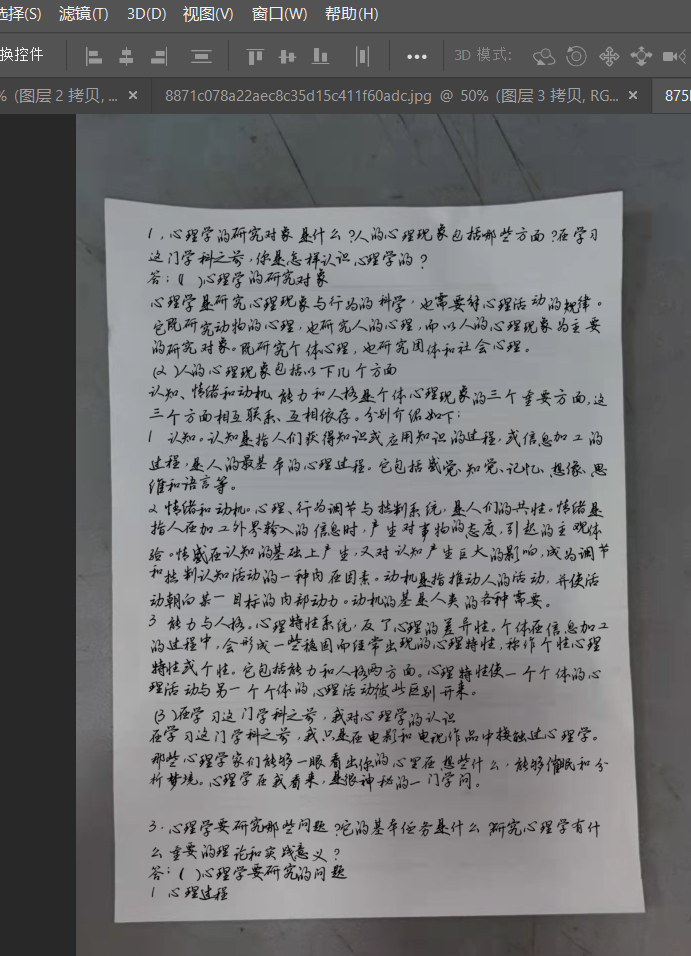 选择(S) 滤镜(T) 3D(D) 视图(V) 窗口(W) 帮助(H)
换控件 ••• 3D 模式:
% (图层 2 拷贝, ... × 8871c078a22aec8c35d15c411f60adc.jpg @ 50% (图层 3 拷贝, RG... × 875
1,心理学的研究对象是什么?人的心理现象包括哪些方面?在学习
这门学科之前,你是怎样认识心理学的?
答:(1)心理学的研究对象
心理学是研究心理现象与行为的科学,也需要研心理活动的规律。
它既研究动物的心理,也研究人的心理,而以人的心理现象为主要
的研究对象。既研究个体心理,也研究团体和社会心理。
(2)人的心理现象包括以下几个方面
认知、情绪和动机、能力和人格是个体心理现象的三个重要方面,这
三个方面相互联系、互相依存。分别介绍如下:
1 认知。认知是指人们获得知识或应用知识的过程,或信息加工的
过程,是人的最基本的心理过程。它包括感觉、知觉、记忆、想像、思
维和语言等。
2 情绪和动机。心理、行为调节与控制系统,是人们的共性。情绪是
指人在加工外界输入的信息时,产生对事物的态度,引起的主观体
验。情感在认知的基础上产生,又对认知产生巨大的影响,成为调节
和控制认知活动的一种内在因素。动机是指推动人的活动,并使活
动朝向某一目标的内部动力。动机的基是人类的各种需要。
3 能力与人格。心理特性系统,反了心理的差异性。个体在信息加工
的过程中,会形成一些稳固而经常出现的心理特性,称作个性心理
特性或个性。它包括能力和人格两方面。心理特性使一个个体的心
理活动与另一个个体的心理活动彼此区别开来。
(3)在学习这门学科之前,我对心理学的认识
在学习这门学科之前,我只是在电影和电视作品中接触过心理学。
那些心理学家们能够一眼看出你的心里在想些什么,能够催眠和分
析梦境。心理学在我看来,是很神秘的一门学问。
3.心理学要研究哪些问题?它的基本任务是什么?研究心理学有什
么重要的理论和实践意义?
答:(1)心理学要研究的问题
1 心理过程